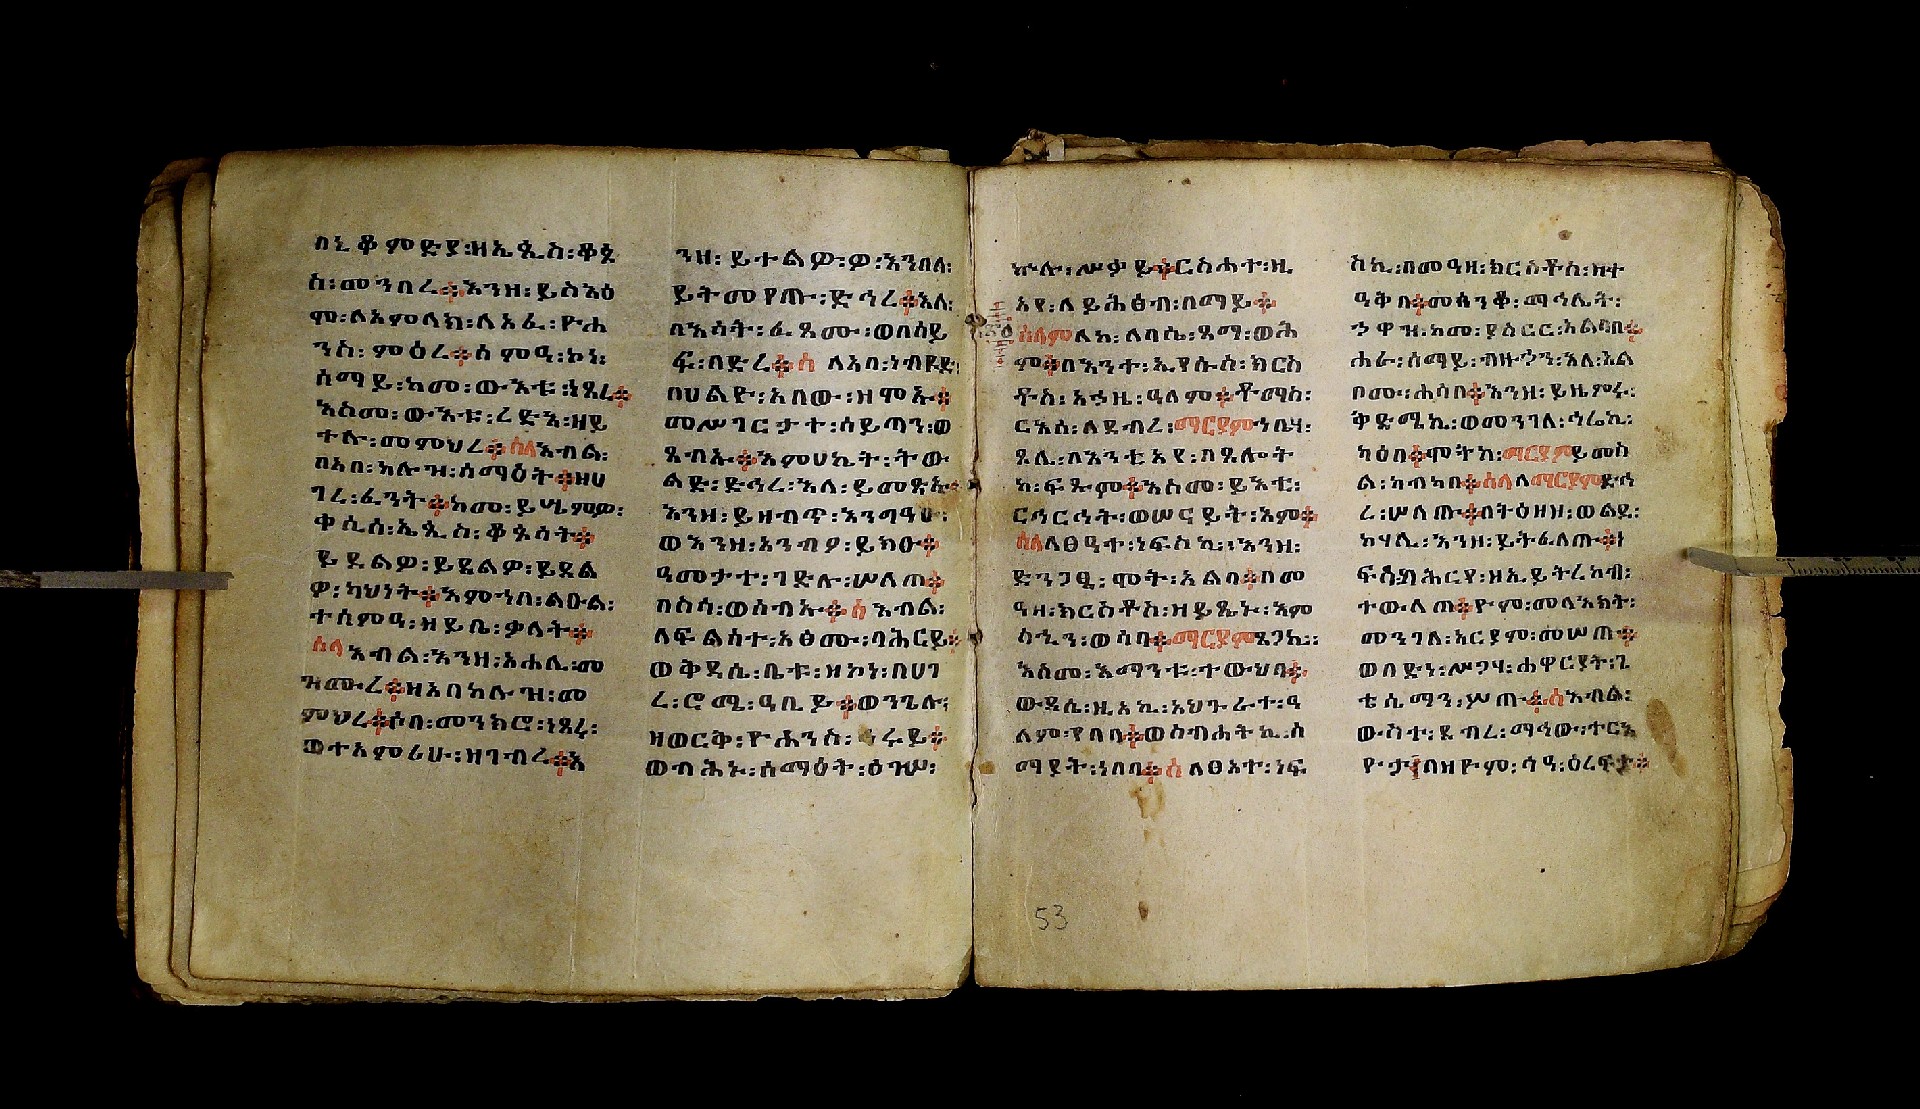 በኒቆምድያ፡ዘኤጲስ፡ቆጶ
ስ፡መንበረ፨እንዘ፡ይስእዕ
ሞ፡ለአምላክ፡ለአፈ፡ዮሐ
ንስ፡ምዕረ፨ሰምዓ፡ኮነ፡
ሰማይ፡ከመ፡ውእቱ፡ኄጸረ፨
እስመ፡ውእቱ፡ረድእ፡ዘይ
ተሉ፡መምህረ፨ሰላእብል፡
በአበ፡ኵሉ፡ሰማዕት፨ዘሀ
ገረ፡ፈንት፨ከመ፡ይሢምዎ፡
ቀሲሰ፡ኤጲስ፡ቆጶሳት፨
ይዴልዎ፡ይዴልዎ፡ይዴል
ዎ፡ካህነት፨እምኀበ፡ልዑል፡
ተሰምዓ፡ዘይቤ፡ቃላት፨
ሰላእብል፡እንዘ፡አሐሊ፡መ
ዝሙረ፨ዘአበ፡መ
ምህረ፨ሶበ፡መንክሮ፡ነጸረ፡
ወተአምሪሁ፡ዘገብረ፨እ
ንዘ፡ይተልዎ፡ዎ፡እንበለ፡
ይትመየጡ፡ድኅረ፨እለ፡
በእሳት፡ፈጸሙ፡ወበሰይ
ፍ፡በድረ፨ሰ ለአበ፡ነብዩድ፡
በሀልዮ፡አበው፡ዘሞኡ፨
መሥገርታተ፡ሰይጣን፡ወ
ጸብኡ፨እምሀኬት፡ትው
ልድ፡ድኅረ፡እለ፡ይመጽኡ፨
እንዘ፡ይዘብጥ፡እንግዓሁ፡
ወእንዘ፡አንብዖ፡ይክዑ፨
ዓመታተ፡ገድሉ፡ሠለጠ፨
በስሳ፡ወሰብኡ፨ሰ እብል፡
ለፍልሰተ፡አፅሙ፡ባሕርይ፨
ወቅዳሴ፡ቤቱ፡ዘኮነ፡በሀገ
ረ፡ሮሜ፡ዓቢይ፨ወንጌሉ፡
ዘወርቅ፡ዮሐንስ፡ ኅሩይ፨
ወብሕኑ፡ሰማዕት፡ዕንሥ፡
ኵሉ፡ሥቃይ፨ርስሐተ፡ዚ
አየ፡ለይሕፅብ፡በማይ፨
ሰላምለኪ፡ለባሴ፡ጻማ፡ወሕ
ማም፨በእንተ፡ኢየሱስ፡ክርስ
ቶስ፡አኃዜ፡ዓለም፨ቶማስ፡
ርእሰ፡ለደብረ፡ማርያምኀበሃ፡
ጸሊ፡በእንቲአየ፡በጸሎት
ከ፡ፍጹም፨እስመ፡ይእቲ፡
ርኅርኅት፡ወሠናይት፡እም፨
ሰላለፀዓተ፡ነፍስኪ፡እንዘ፡
ድንጋፄ፡ሞት፡አልባ፨በመ
ዓዛ፡ክርስቶስ፡ዘይጼኑ፡እም
ስኂን፡ወሳባ፨ማርያምጸጋኪ፡
እስመ፡እማንቱ፡ተውህባ፨
ውዳሴ፡ዚአኪ፡አህጉራተ፡ዓ
ለም፡የበባ፨ወስብሐትኪ፡ሰ
ማያት፡ነበባ፨ሰ ለፀአተ፡ነፍ
ስኪ፡በመዓዛ፡ክርስቶስ፡ክተ
ዓቅበ፨መሰንቆ፡ማኅሌት፡
ኀዋዝ፡ከመ፡ያስርር፡አልባበ፨
ሐራ፡ሰማይ፡ብዙኃን፡እለ፡አል
ቦሙ፡ሐሳበ፨እንዘ፡ይዜምሩ፡
ቅድሜኪ፡ወመንገለ፡ኀሬኪ፡
ካዕበ፨ሞትኪ፡ማርያምይመስ
ል፡ከብካበ፨ሰላለማርያምድኅ
ረ፡ሠለጠ፨በትዕዛዝ፡ወልደ፡
ከሃሊ፡እንዘ፡ይትፈለጡ፨ነ
ፍስ፡እምሕርየ፡ዘኢይትረከብ፡
ተውላጠ፨ዮም፡መላእክት፡
መንገለ፡አርያም፡መሠጠ፨
ወበድነ፡ሥጋሃ፡ሐዋርያት፡ጌ
ቴሴማን፡ሦጡ፨ሰእብል፡
ውስተ፡ደብረ፡ማኅው፡ተርእ
ዮታ፨በዛዮም፡ሳዓ፡ዕረፍታ፨
53